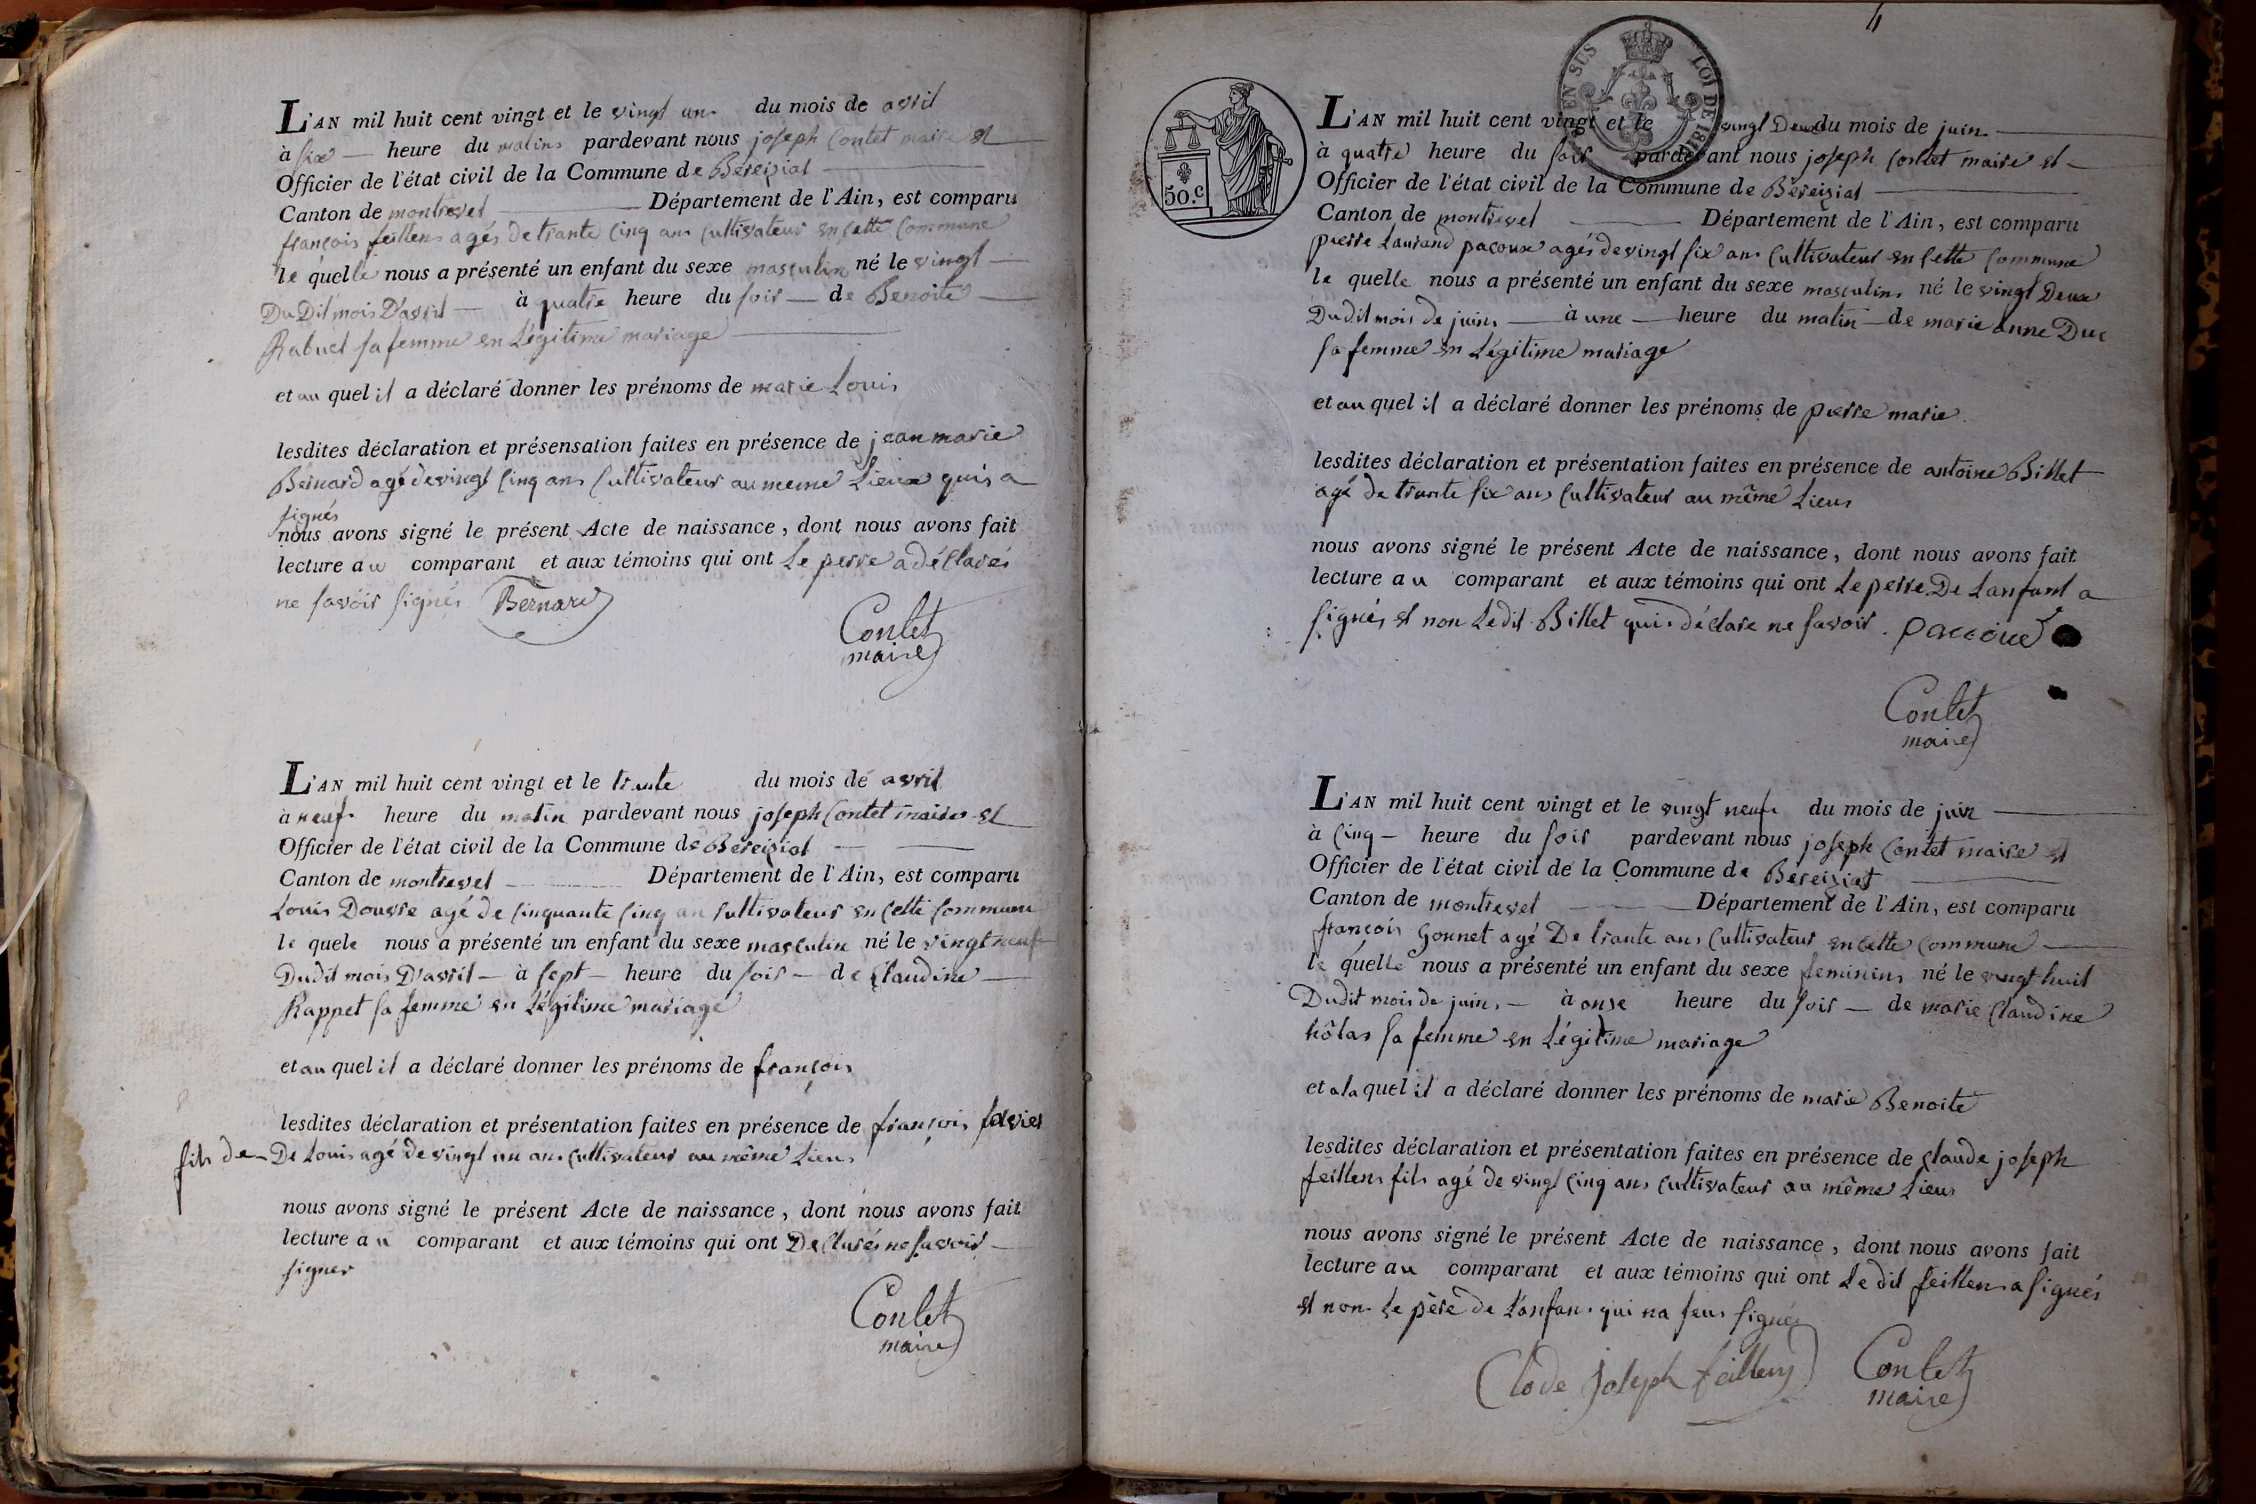 L'AN mil huit cent vingt et le vingt un du mois de avril
à six heure du matins pardevant nous joseph Contet maire et
Officier de l'état civil de la Commune de Béreiziat
Canton de montrevel Département de l'Ain, est comparu
françois feillens agés de trante Cinq ans Cultivateur en Cette Commune
le quelle nous a présenté un enfant du sexe masculin né le vingt
Du Dit mois D'avril à quatre heure du soir de Benoite
Rabuel sa femme en Légitime mariage
et au quel il a déclaré donner les prénoms de marie Louis
lesdites déclaration et présensation faites en présence de jean marie
Bernard agé de vingt Cinq ans Cultivateur au meme Lieux quis a
signés
nous avons signé le présent Acte de naissance, dont nous avons fait
lecture au comparant et aux témoins qui ont Le perre a déClarés
ne savoir signés Bernard
Contet
maire
L'AN mil huit cent vingt et le trante du mois de avril
à neuf heure du matin pardevant nous joseph Contet maire et
Officier de l'état civil de la Commune de Béreiziat
Canton de montrevel Département de l'Ain, est comparu
Louis Douvre agé de Cinquante Cinq an Cultivateur en Cette Commune
le quele nous a présenté un enfant du sexe masculin né le vingt neuf
Dudit mois D'avril à sept heure du soir de Claudine
Rappet sa femme en Légitime mariage
et au quel il a déclaré donner les prénoms de françois
lesdites déclaration et présentation faites en présence de françois favier
fils de De Louis agé de vingt un ans Cultivateur au même Lieus
nous avons signé le présent Acte de naissance, dont nous avons fait
lecture au comparant et aux témoins qui ont DeClarés ne savoir
signer
Contet
maire
4
EN SUS LOI DE 1816
50.c
L'AN mil huit cent vingt et le vingt Deux du mois de juin
à quatre heure du soir pardevant nous joseph Contet maire et
Officier de l'état civil de la Commune de Béreiziat
Canton de montrevel Département de l'Ain, est comparu
pierre Laurand pacoux agés de vingt six ans Cultivateur en Cette Commune
le quelle nous a présenté un enfant du sexe masculins né le vingt Deux
Dudit mois de juin à une heure du matin de marie anne Duc
sa femme en Légitime mariage
et au quel il a déclaré donner les prénoms de pierre marie
lesdites déclaration et présentation faites en présence de antoine Billet
agé de trante six ans Cultivateur au même Lieus
nous avons signé le présent Acte de naissance, dont nous avons fait
lecture au comparant et aux témoins qui ont Le perre De Lanfant a
signés et non Ledit Billet quis déclare ne savoir. paccoud
Contet
maire
L'AN mil huit cent vingt et le vingt neuf du mois de juin
à Cinq heure du soir pardevant nous joseph Contet maire et
Officier de l'état civil de la Commune de Béreiziat
Canton de montrevel Département de l'Ain, est comparu
françois Gonnet agé De trante ans Cultivateur en Cette Commune
le quelle nous a présenté un enfant du sexe feminins né le vingt huit
Dudit mois de juin à onse heure du soir de marie Claudine
hôtas sa femme en Légitime mariage
et a la quel il a déclaré donner les prénoms de marie Benoite
lesdites déclaration et présentation faites en présence de Claude joseph
feillens fils agé de vingt Cinq ans Cultivateur au même Lieus
nous avons signé le présent Acte de naissance, dont nous avons fait
lecture au comparant et aux témoins qui ont Le dit feillens a signés
et non Le père de L'anfan qui na seus signé
Clode joseph feillens Contet
maire